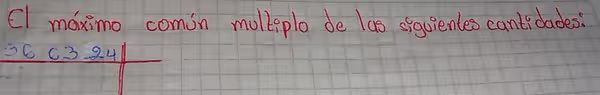 El máximo común multiplo de las siguientes cantidades:
36 63 24